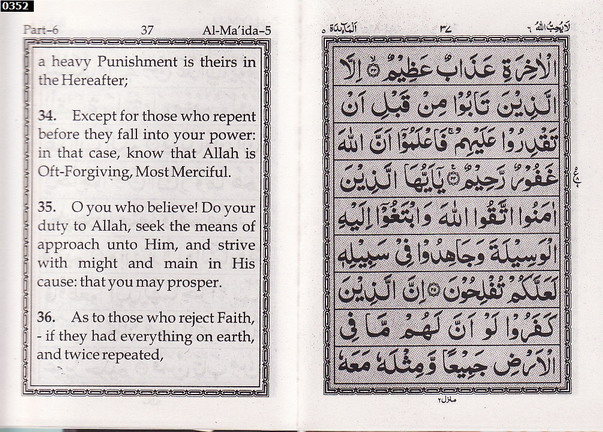 0352
Part-6 37 Al-Ma'ida-5
a heavy Punishment is theirs in
the Hereafter;
34. Except for those who repent
before they fall into your power:
in that case, know that Allah is
Oft-Forgiving, Most Merciful.
35. O you who believe! Do your
duty to Allah, seek the means of
approach unto Him, and strive
with might and main in His
cause: that you may prosper.
36. As to those who reject Faith,
- if they had everything on earth,
and twice repeated,
لَا يُحِبُّ اللهُ ٦ ٣٧ اَلْمَآئِدَة ٥
الْاٰخِرَةِ عَذَابٌ عَظِيْمٌ ۝٣٣ اِلَّا
الَّذِيْنَ تَابُوْا مِنْ قَبْلِ اَنْ
تَقْدِرُوْا عَلَيْهِمْ ۚ فَاعْلَمُوْٓا اَنَّ اللهَ
غَفُوْرٌ رَّحِيْمٌ ۝٣٤ يٰٓاَيُّهَا الَّذِيْنَ
اٰمَنُوا اتَّقُوا اللهَ وَابْتَغُوْٓا اِلَيْهِ
الْوَسِيْلَةَ وَجَاهِدُوْا فِيْ سَبِيْلِهٖ
لَعَلَّكُمْ تُفْلِحُوْنَ ۝٣٥ اِنَّ الَّذِيْنَ
كَفَرُوْا لَوْ اَنَّ لَهُمْ مَّا فِى
الْاَرْضِ جَمِيْعًا وَّمِثْلَهٗ مَعَهٗ
منزل ٢